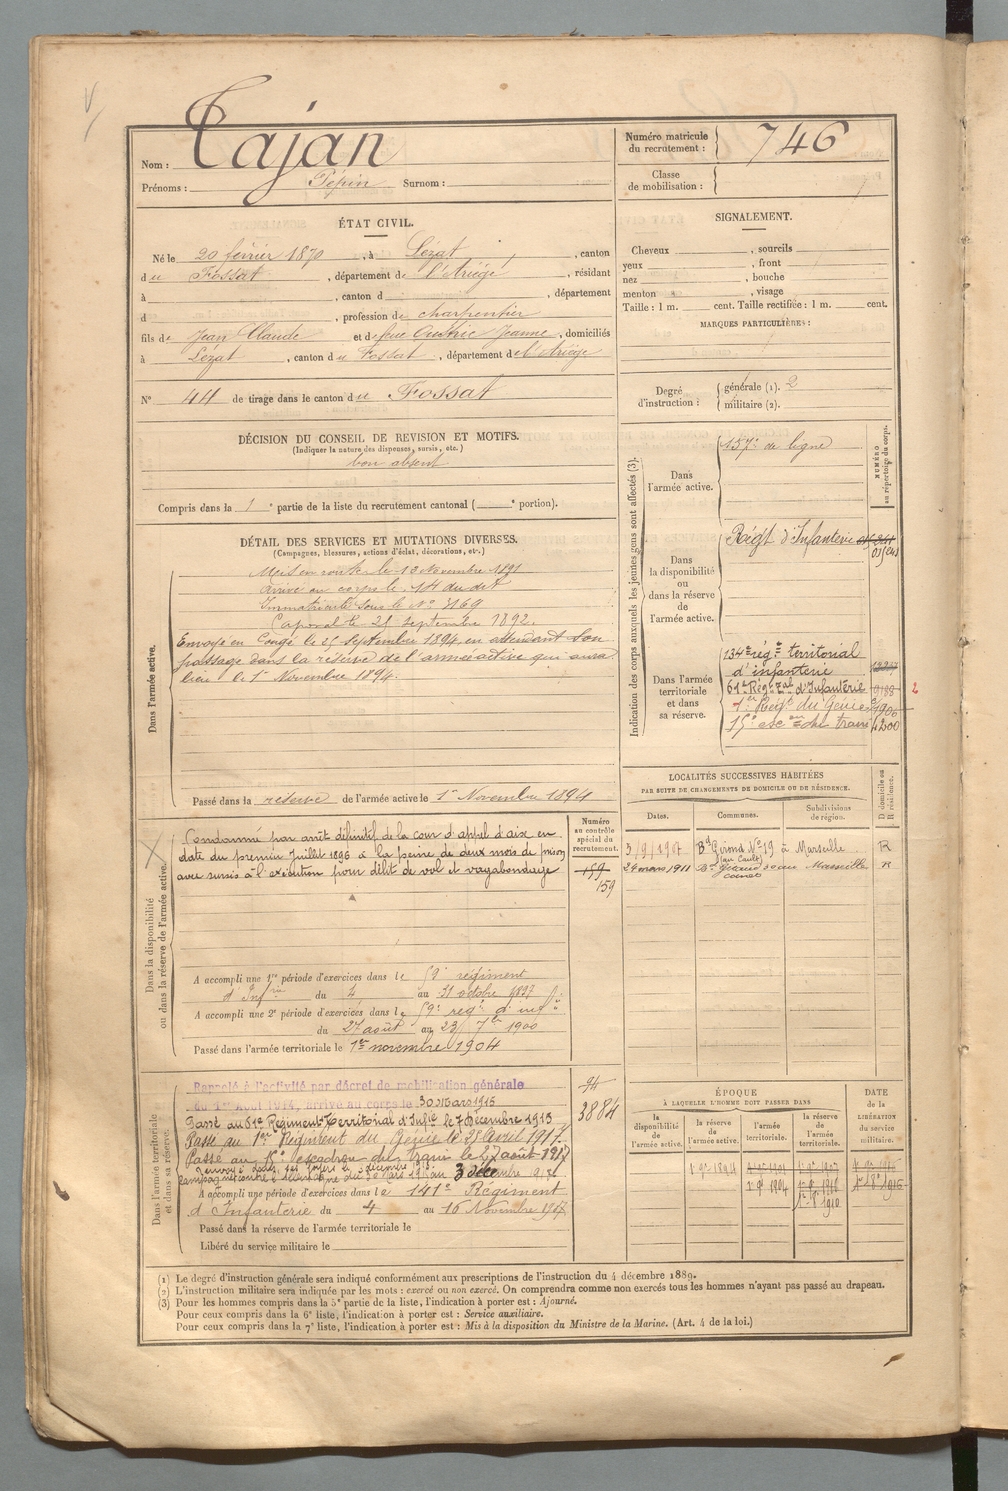 Nom : Tajan
Prénoms : Pépin Surnom :
Numéro matricule du recrutement : 746
Classe de mobilisation :
ÉTAT CIVIL.
Né le 20 février 1870, à Lezat, canton
du Fossat, département de l'Ariège, résidant
à , canton d , département
d , profession de charpentier
fils de Jean Claude et de feue Jeanne, domiciliés
à Lézat, canton du Fossat, département de l'Ariège
N° 44 de tirage dans le canton du Fossat
SIGNALEMENT.
Cheveux , sourcils
yeux , front
nez , bouche
menton , visage
Taille : 1 m. cent. Taille rectifiée : 1 m. cent.
MARQUES PARTICULIÈRES :
Degré d'instruction : générale (1). 2
militaire (2).
DÉCISION DU CONSEIL DE REVISION ET MOTIFS.
(Indiquer la nature des dispenses, sursis, etc.)
bon absent
Compris dans la 1e partie de la liste du recrutement cantonal ( e portion).
DÉTAIL DES SERVICES ET MUTATIONS DIVERSES.
(Campagnes, blessures, actions d'éclat, décorations, etc.)
Dans l'armée active.
Mis en route le 13 Novembre 1891
Arrivé au corps le 14 du dit
Immatriculé sous le N° 3169
Caporal le 21 septembre 1892.
Envoyé en Congé le 25 Septembre 1894 en attendant son
passage dans la réserve de l'armée active qui aura
lieu le 1er Novembre 1894.
Passé dans la réserve de l'armée active le 1er Novembre 1894
Dans la disponibilité ou dans la réserve de l'armée active.
Condamné par arrêt définitif de la cour d'appel d'aix en
date du premier Juillet 1896 à la peine de deux mois de prison
avec sursis à l'exécution pour délit de vol et vagabondage
Numéro au contrôle spécial du recrutement.
159
159
A accompli une 1re période d'exercices dans le 59e régiment
d'Infrie du 4 au 31 octobre 1897
A accompli une 2e période d'exercices dans le 59e régt d'infie
du 27 août au 23 7bre 1900
Passé dans l'armée territoriale le 1er novembre 1904
Dans l'armée territoriale et dans sa réserve.
Rappelé à l'activité par décret de mobilisation générale
du 1er Août 1914, arrivé au corps le 30 Mars 1915
Passé au 61e Régiment Territorial d'Infie le 7 Décembre 1915
Passé au 1er Régiment du Génie le 25 Avril 1917
Passé au 15e escadron du train le 27 août 1917
A accompli une période d'exercices dans le 141e Régiment
d'Infanterie du 4 au 16 Novembre 1907
Passé dans la réserve de l'armée territoriale le
Libéré du service militaire le
3884
Indication des corps auxquels les jeunes gens sont affectés (3).
NUMÉRO au répertoire du corps.
Dans l'armée active.
157e de ligne
Dans la disponibilité ou dans la réserve de l'armée active.
Régt d'Infanterie
Dans l'armée territoriale et dans sa réserve.
134e régt territorial
d'infanterie
61e Régt tal d'Infanterie 9188 2
1er Régt du Génie 1900
15e escon du train 4300
LOCALITÉS SUCCESSIVES HABITÉES
PAR SUITE DE CHANGEMENTS DE DOMICILE OU DE RÉSIDENCE.
Dates. Communes. Subdivisions de région. D domicile ou R résidence.
3/9/1907 Bd Girond N° 19 à Marseille R
24 mars 1911 Marseille R
ÉPOQUE
À LAQUELLE L'HOMME DOIT PASSER DANS
la disponibilité de l'armée active. la réserve de l'armée active. l'armée territoriale. la réserve de l'armée territoriale.
DATE de la LIBÉRATION du service militaire.
(1) Le degré d'instruction générale sera indiqué conformément aux prescriptions de l'instruction du 4 décembre 1889.
(2) L'instruction militaire sera indiquée par les mots : exercé ou non exercé. On comprendra comme non exercés tous les hommes n'ayant pas passé au drapeau.
(3) Pour les hommes compris dans la 5e partie de la liste, l'indication à porter est : Ajourné.
Pour ceux compris dans la 6e liste, l'indication à porter est : Service auxiliaire.
Pour ceux compris dans la 7e liste, l'indication à porter est : Mis à la disposition du Ministre de la Marine. (Art. 4 de la loi.)